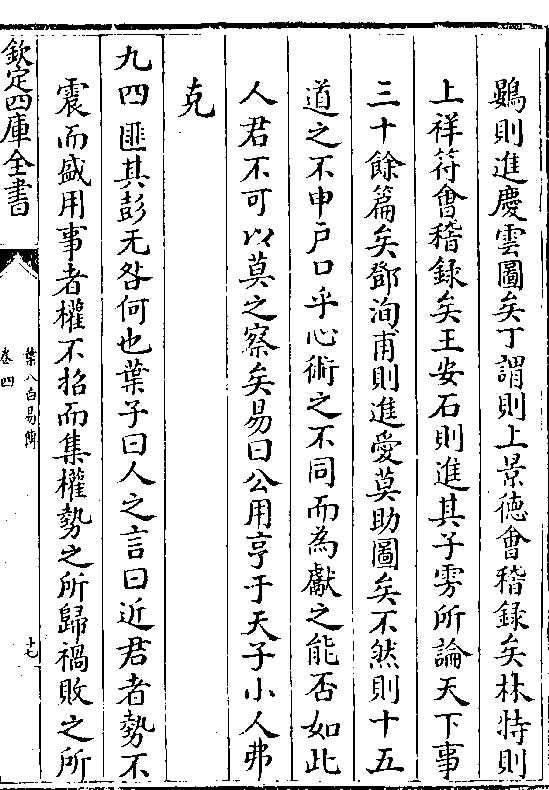 鷃則進慶雲圖矣丁謂則上景徳會稽録矣林特則
上祥符會稽録矣王安石則進其子雱所論天下事
三十餘篇矣鄧洵甫則進愛莫助圖矣不然則十五
道之不申戸口乎心術之不同而為獻之能否如此
人君不可以莫之察矣易曰公用亨于天子小人弗
克
九四匪其彭无咎何也葉子曰人之言曰近君者勢不
震而盛用事者權不招而集權勢之所歸禍敗之所
欽定四庫全書
葉八白易傳
卷四
十七